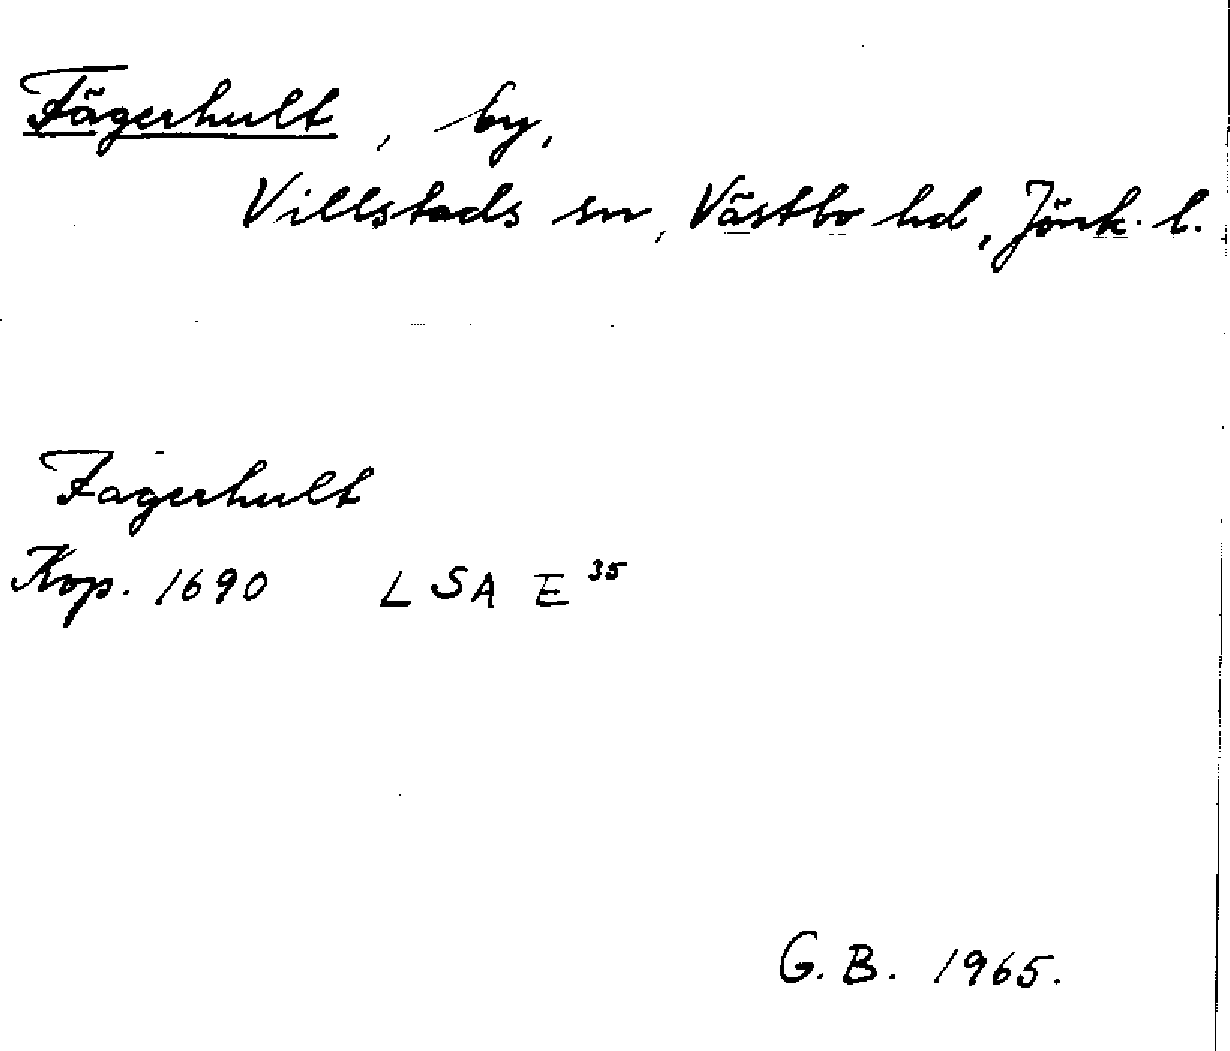 Fägerhult, by,
Villstads sn, Västbo hd, Jönk. l.
Fagerhult
Kop. 1690 LSA E 35
G. B. 1965.